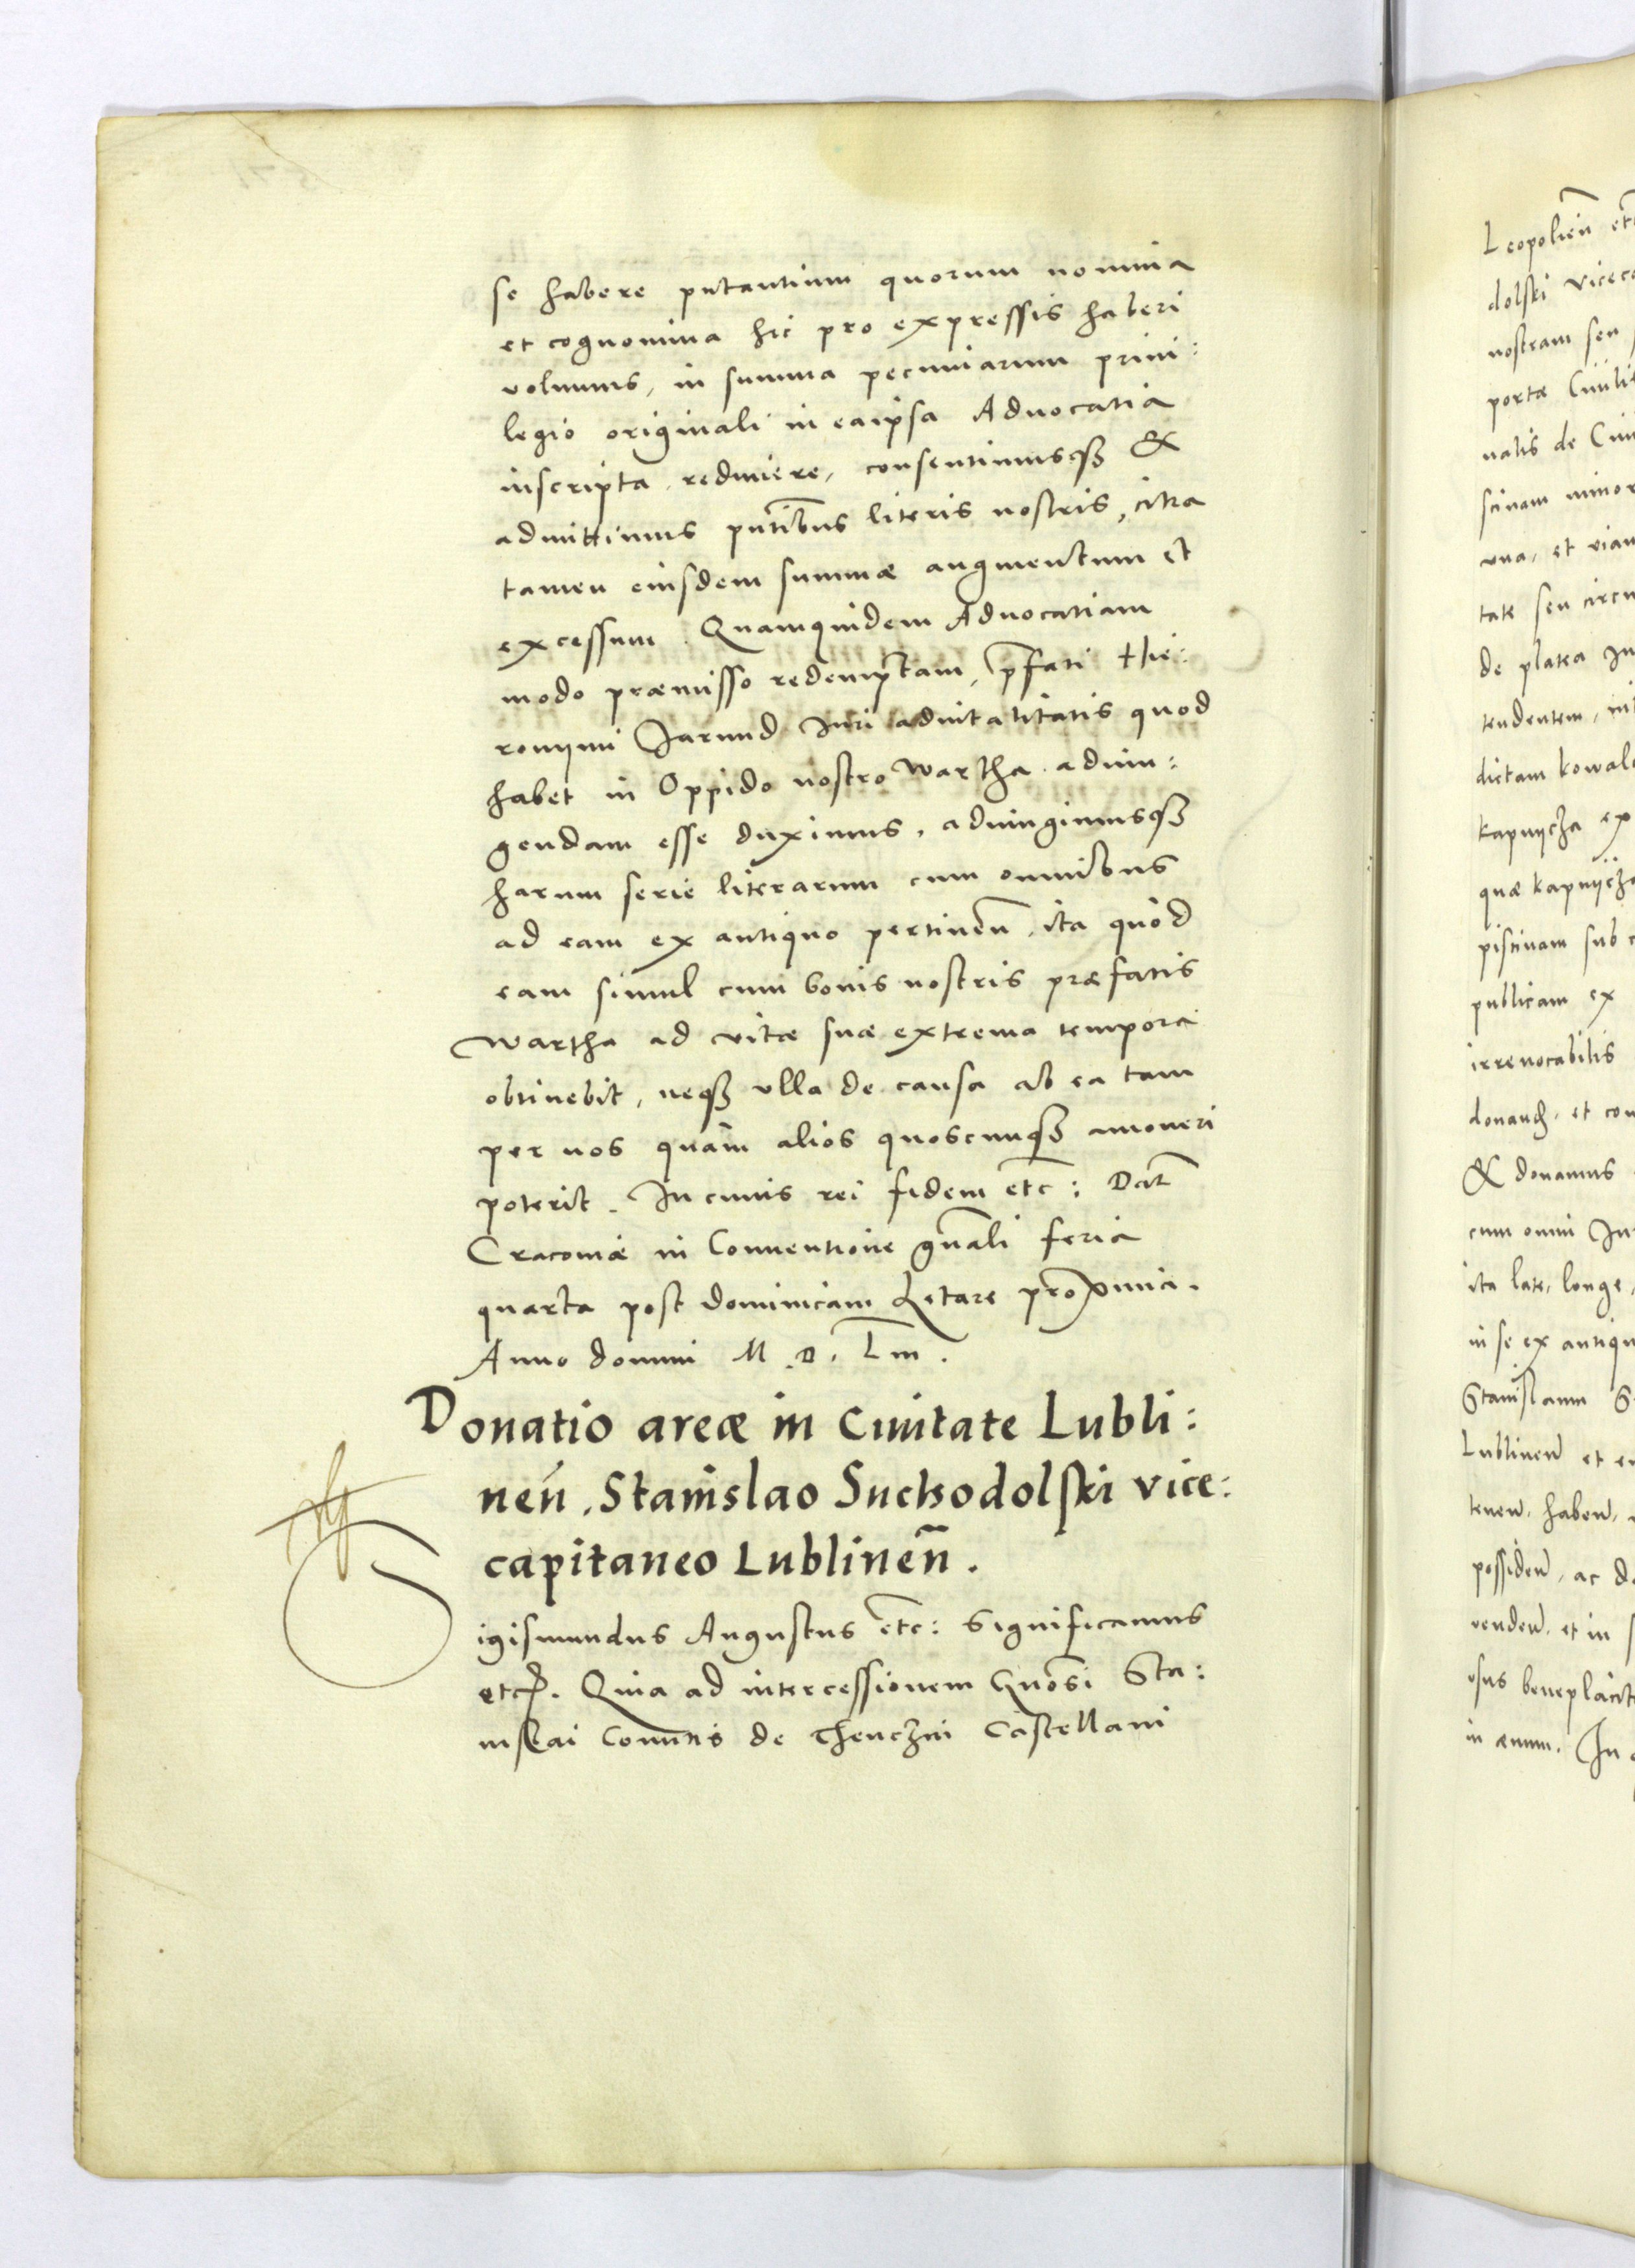 se habere putantium quorum nomina
et cognomina hic pro expressis haberi
volumus, in summa pecuniarum priui:
legio originali in eaipsa Aduocatia
inscripta, redimere, consentimusqȝ &
admittimus pn̄tibus literis nostris, citra
tamen eiusdem summæ augmentum et
excessum. Quamquidem Aduocatiam
modo præmisso redemptam, p̄fati Hie:
ronijmi Jarund Juri aduitalitatis quod
habet in Oppido nostro Wartha adiun:
gendam esse duximus, adiungimusqȝ
harum serie literarum cum omnibus
ad eam ex antiquo pertinen̄, ita quod
eam simul cum bonis nostris præfatis
Wartha ad vitæ suæ extrema tempora
obtinebit, neqȝ vlla de causa ab ea tam
per nos quàm alios quoscunqȝ amoueri
poterit. In cuius rei fidem etc̄: Dat̄
Cracouiæ in Conuentione gn̄ali feria
quarta post dominicam Letare proxima.
Anno domini M.D.Liii.
Donatio areæ in Ciuitate Lubli:
nen̄. Stanislao Suchodolski vice:
capitaneo Lublinen̄.
Sigismundus Augustus etc̄: Significamus
etc. Quia ad intercessionem Gn̄osi Sta:
nislai Comitis de Thenczin Castellani
Leopolien̄ et
dolski vicec
nostram seu
portæ Ciuit
nalis de Ciui
scinam minor
vna, et viam
tate seu circu
de platea in
tendentem, int
dictam kowal
kapnijcza ex
quæ kapnijcza
piscinam sub
publicam ex
irreuocabilis
donand, et con
& donamus
cum omni Iu
ita late, longe,
in se ex antiqu
Stanislaum S
Lublinen̄ et e
tenen̄, haben̄,
possiden̄, ac d
venden̄, et in
osus beneplacit
in æuum. In